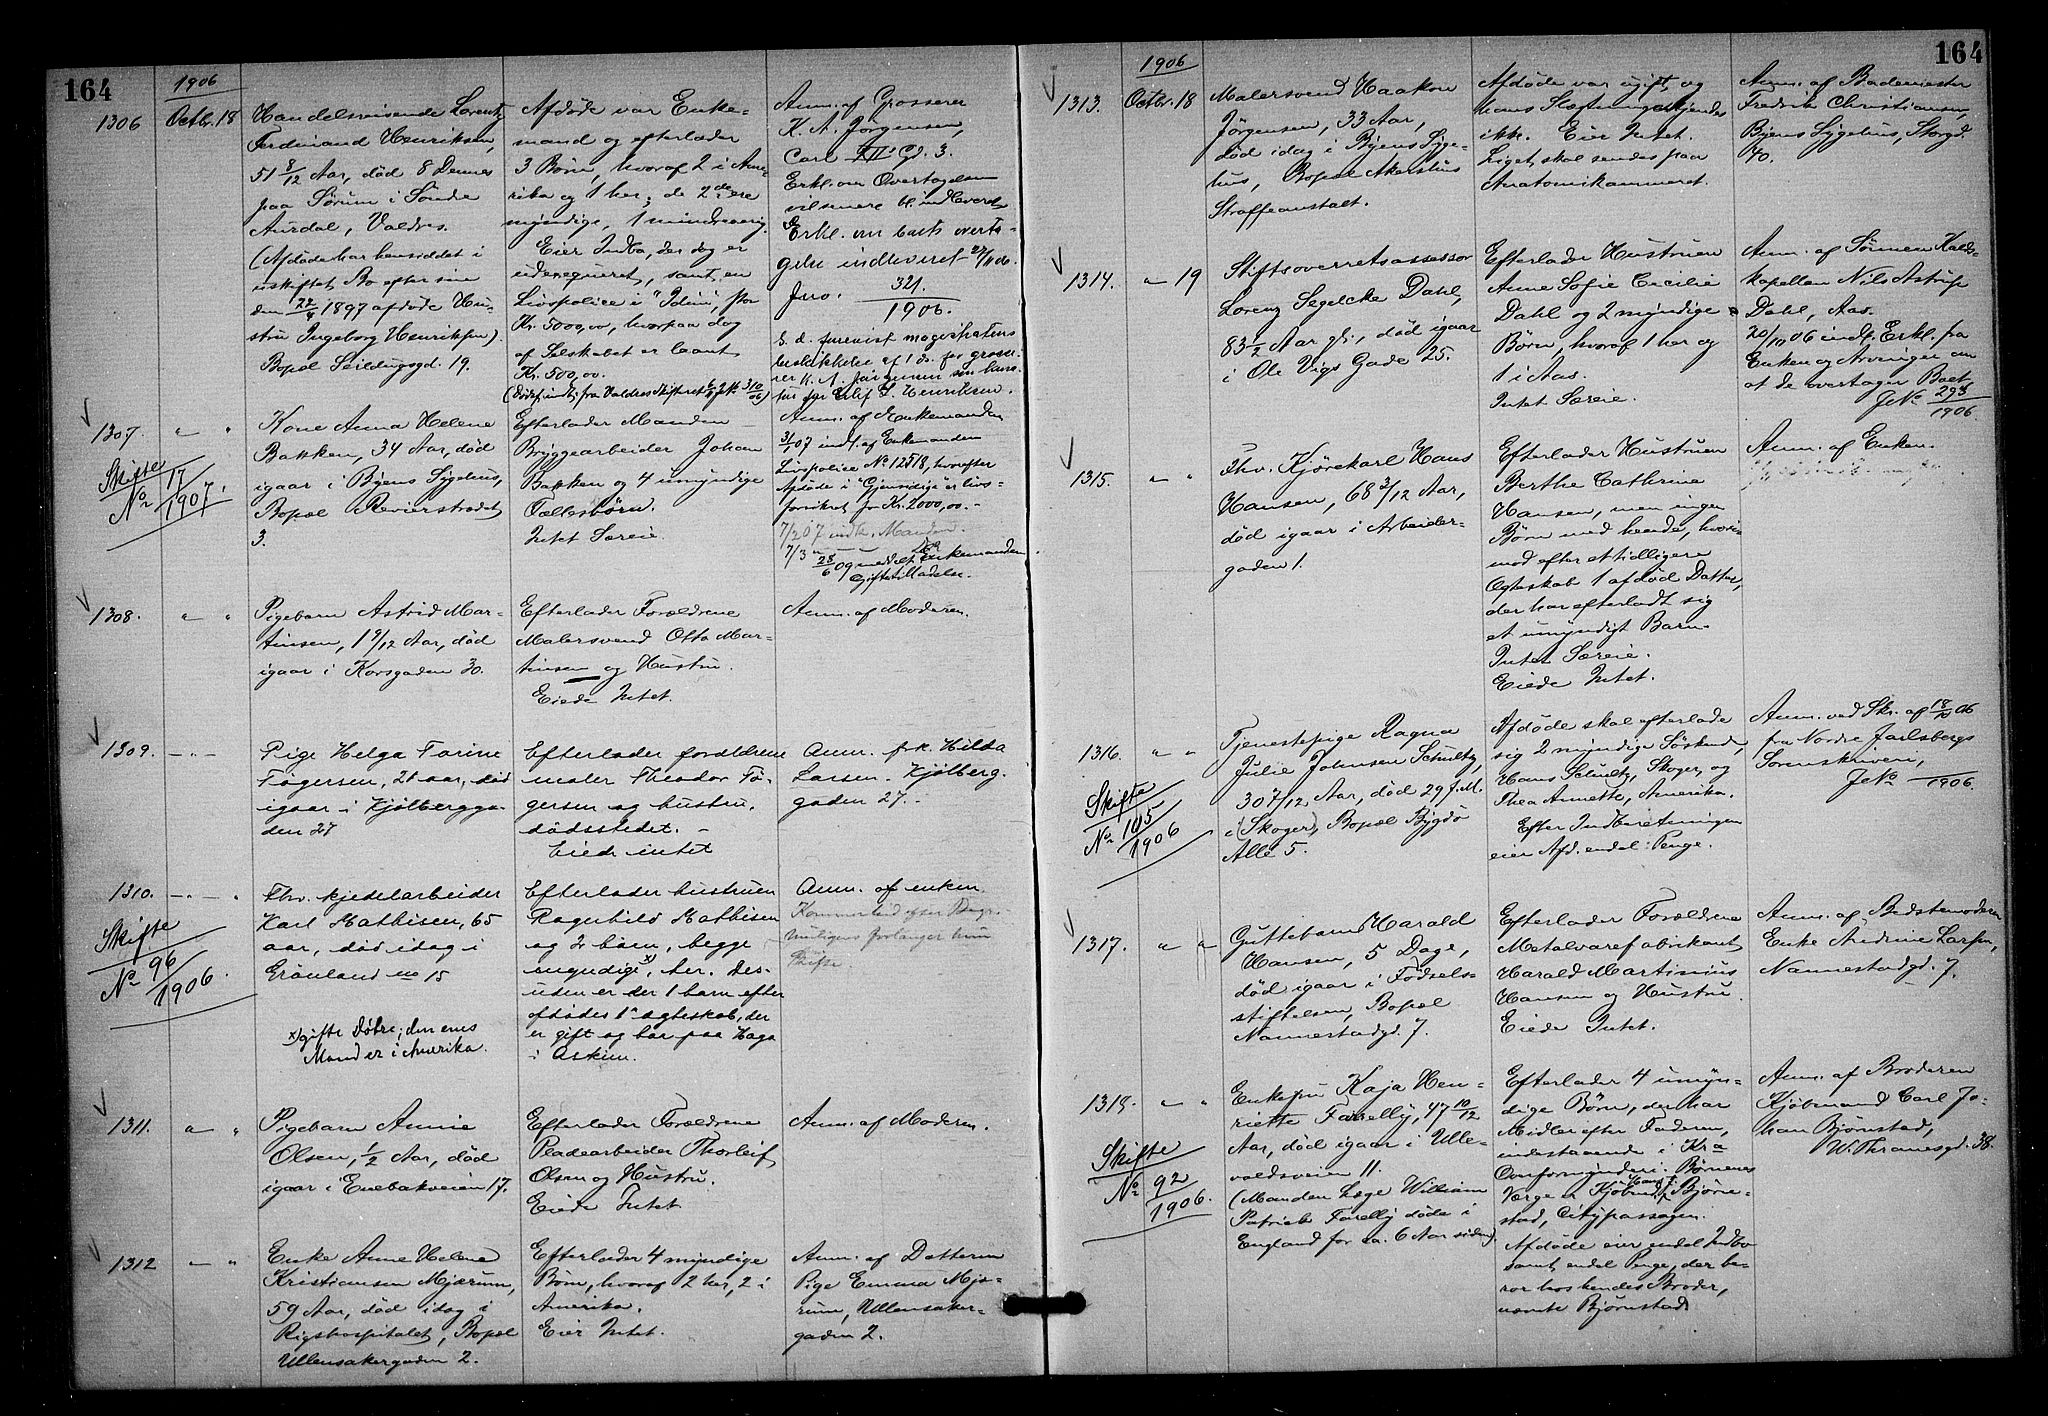 164
1906
1306 Octbr. 18
Handelsreisende Lorentz
Ferdinand Henriksen,
51 8/12 Aar, død 8 Dennes
paa Sørum i Søndre
Aurdal, Valdres.
(Afdøde har hensiddet i
uskiftet Bo efter sin
den 22/4 1897 afdøde Hu-
stru Ingeborg Henriksen).
Bopæl Seildugsgd. 19.
Afdøde var Enke-
mand og efterlader
3 Børn, hvoraf 2 i Ame-
rika og 1 her; de 2 de ere
myndige, 1 mindreaarig.
Eier Indbo, der dog er
ubetegnet, samt en
Livspolice i "Idun", for
Kr. 5000,00, hvorpaa dog
af Selskabet er laant
Kr. 500,00.
Anm. af Grosserer
K. A. Jørgensen,
Carl XII Gd. 3.
Erkl. om Overtagelsen
vil senere bl. indleveret
Erkl. om boets overta-
gelse indleveret 27/11 06.
Jno. 321.
1906.
S. d. forevist magistratens
beskikkelse af 1 ds. for grosse-
rer K. A. Jørgensen som kura-
tor for Erlif L. Henriksen.
1307. " "
Skifte
No 17
1907.
Kone Anna Helene
Bakken, 34 Aar, død
igaar i Byens Sygehus,
Bopæl Revierstrædet
3.
Efterlader Manden
Bryggearbeider Johan
Bakken og 4 umyndige
Fællesbørn.
Intet Særeie.
Anm. af Enkemanden
3/1 07 indl. af Enkemanden
Livspolice No 12518, hvorefter
Afdøde i "Gjensidige" er livs-
forsikret for Kr. 2000,00.-
7/2 07 indk. Manden.
7/3 " — —
28/6 09 meddelt Enkemanden
Giftetilladelse.
1308. " "
Pigebarn Astrid Mar-
tinsen, 1 9/12 Aar, død
igaar i Korsgaden 30.
Efterlader Forældrene
Malersvend Otto Mar-
tinsen og Hustru.
Eiede Intet.
Anm. af Moderen.
1309. — " —
Pige Helga Farine
Fagersen, 21 aar, død
igaar i Kjølbergga-
den 27
Efterlader forældrene
maler Theodor Fa-
gersen og hustru,
dødsstedet. —
Eiede intet
Anm. frk. Hilda
Larsen. Kjølberg-
gaden 27.
1310. — " — "
Skifte
No 96
1906.
Fhv. kjedelarbeider
Karl Mathisen, 65
aar, død idag i
Grønland no 15
x) gifte Døtre; den enes
Mand er i Amerika.
Efterlader hustruen
Ragnhild Mathisen
og 2 børn, begge
myndige x), her. Des-
uden er der 1 barn efter
afdødes 1ste ægteskab, der
er gift og bor paa Haga
i Askim.
Anm. af enken.
Kommer ind efter Begr.
Muligens forlanger hun
Skifte.
1311. " "
Pigebarn Annie
Olsen, 1/2 Aar, død
igaar i Enebakveien 17.
Efterlader Forældrene
Pladearbeider Thorleif
Olsen og Hustru.
Eiede Intet
Anm. af Moderen.
1312 " "
Enke Anne Helene
Kristiansen Mjærum,
59 Aar, død idag i
Rigshospitalet, Bopæl
Ullensakergaden 2.
Efterlader 4 myndige
Børn, hvoraf 2 her, 2 i
Amerika.
Eier Intet.
Anm. af Datteren
Pige Emma Mjæ-
rum, Ullensaker-
gaden 2.
164
1906
1313. Octbr. 18
Malersvend Haakon
Jörgensen, 33 Aar,
død idag i Byens Syge-
hus, Bopæl Akershus
Straffeanstalt.
Afdøde var ugift, og
hans Slægtninge kjendes
ikke. Eier Intet.
Liget skal sendes paa
Anatomikammeret.
Anm. af Bademester
Fredrik Christiansen,
Byens Sygehus, Storgd.
40.
1314. " 19
Stiftsoverretsassessor
Lorenz Segelcke Dahl,
83 1/2 Aar gl., død igaar
i Ole Vigs Gade 25.
Efterlader Hustruen
Anne Sofie Cecilie
Dahl og 2 myndige
Børn, hvoraf 1 her og
1 i Aas.
Intet Særeie.
Anm. af Sønnen Kalds-
kapellan Nils Astrup
Dahl, Aas.
20/10 06 indl. Erkl. fra
Enken og Arvinger om
at de overtager Boet
J No 298
1906
1315. " "
Fhv. Kjørekarl Hans
Hansen, 68 3/12 Aar,
død igaar i Arbeider-
gaden 1.
Efterlader Hustruen
Berthe Cathrine
Hansen, men ingen
Børn med hende, hvori-
mod efter et tidligere
Ægteskab 1 afdød Datter,
der har efterladt sig
et umyndigt Barn.
Intet Særeie.
Eiede Intet.
Anm. af Enken.
1316. " "
Skifte
No 105
1906
Tjenestepige Ragna
Julie Johnsen Schultz,
30 7/12 Aar, død 29 f. M.
i (Skoger), Bopæl Bygdø
Alle 5.
Afdøde skal efterlade
sig 2 myndige Søskend,
Hans Schultz, Skoger, og
Thea Annette, Amerika.
Efter Indberetningen
eier Afd. endel Penge.
Anm. ved Skr. af 18/10 06
fra Nordre Jarlsbergs
Sorenskriveri,
J No
1906
1317. " "
Guttebarn Harald
Hansen, 5 Dage,
død igaar i Fødsels-
stiftelsen, Bopæl
Nannestadgd. 7.
Efterlader Forældrene
Metalvarefabrikant
Harald Martinius
Hansen og Hustru.
Eiede Intet.
Anm. af Bedstemoderen
Enke Andrine Larsen,
Nannestadgd. 7.
1318. " "
Skifte
No 92
1906.
Enkefru Kaja Hen-
riette Farelly, 47 10/12
Aar, død igaar i Ulle-
voldsveien 11.
(Manden Læge William
Patrick Farelly døde i
England for ca. 6 Aar siden).
Efterlader 4 umyn-
dige Børn, der har
Midler efter Faderen,
indestaaende i Kra
Overformynderi. Børnenes
Værge er Kjøbmd. Hans F. Bjørn-
stad, Citypassagen.
Afdøde eier endel Indbo
samt endel Penge, der be-
ror hos hendes Broder,
nævnte Bjørnstad.
Anm. af Broderen
Kjøbmand Carl Jo-
han Bjørnstad,
W. Thranesgd. 38.